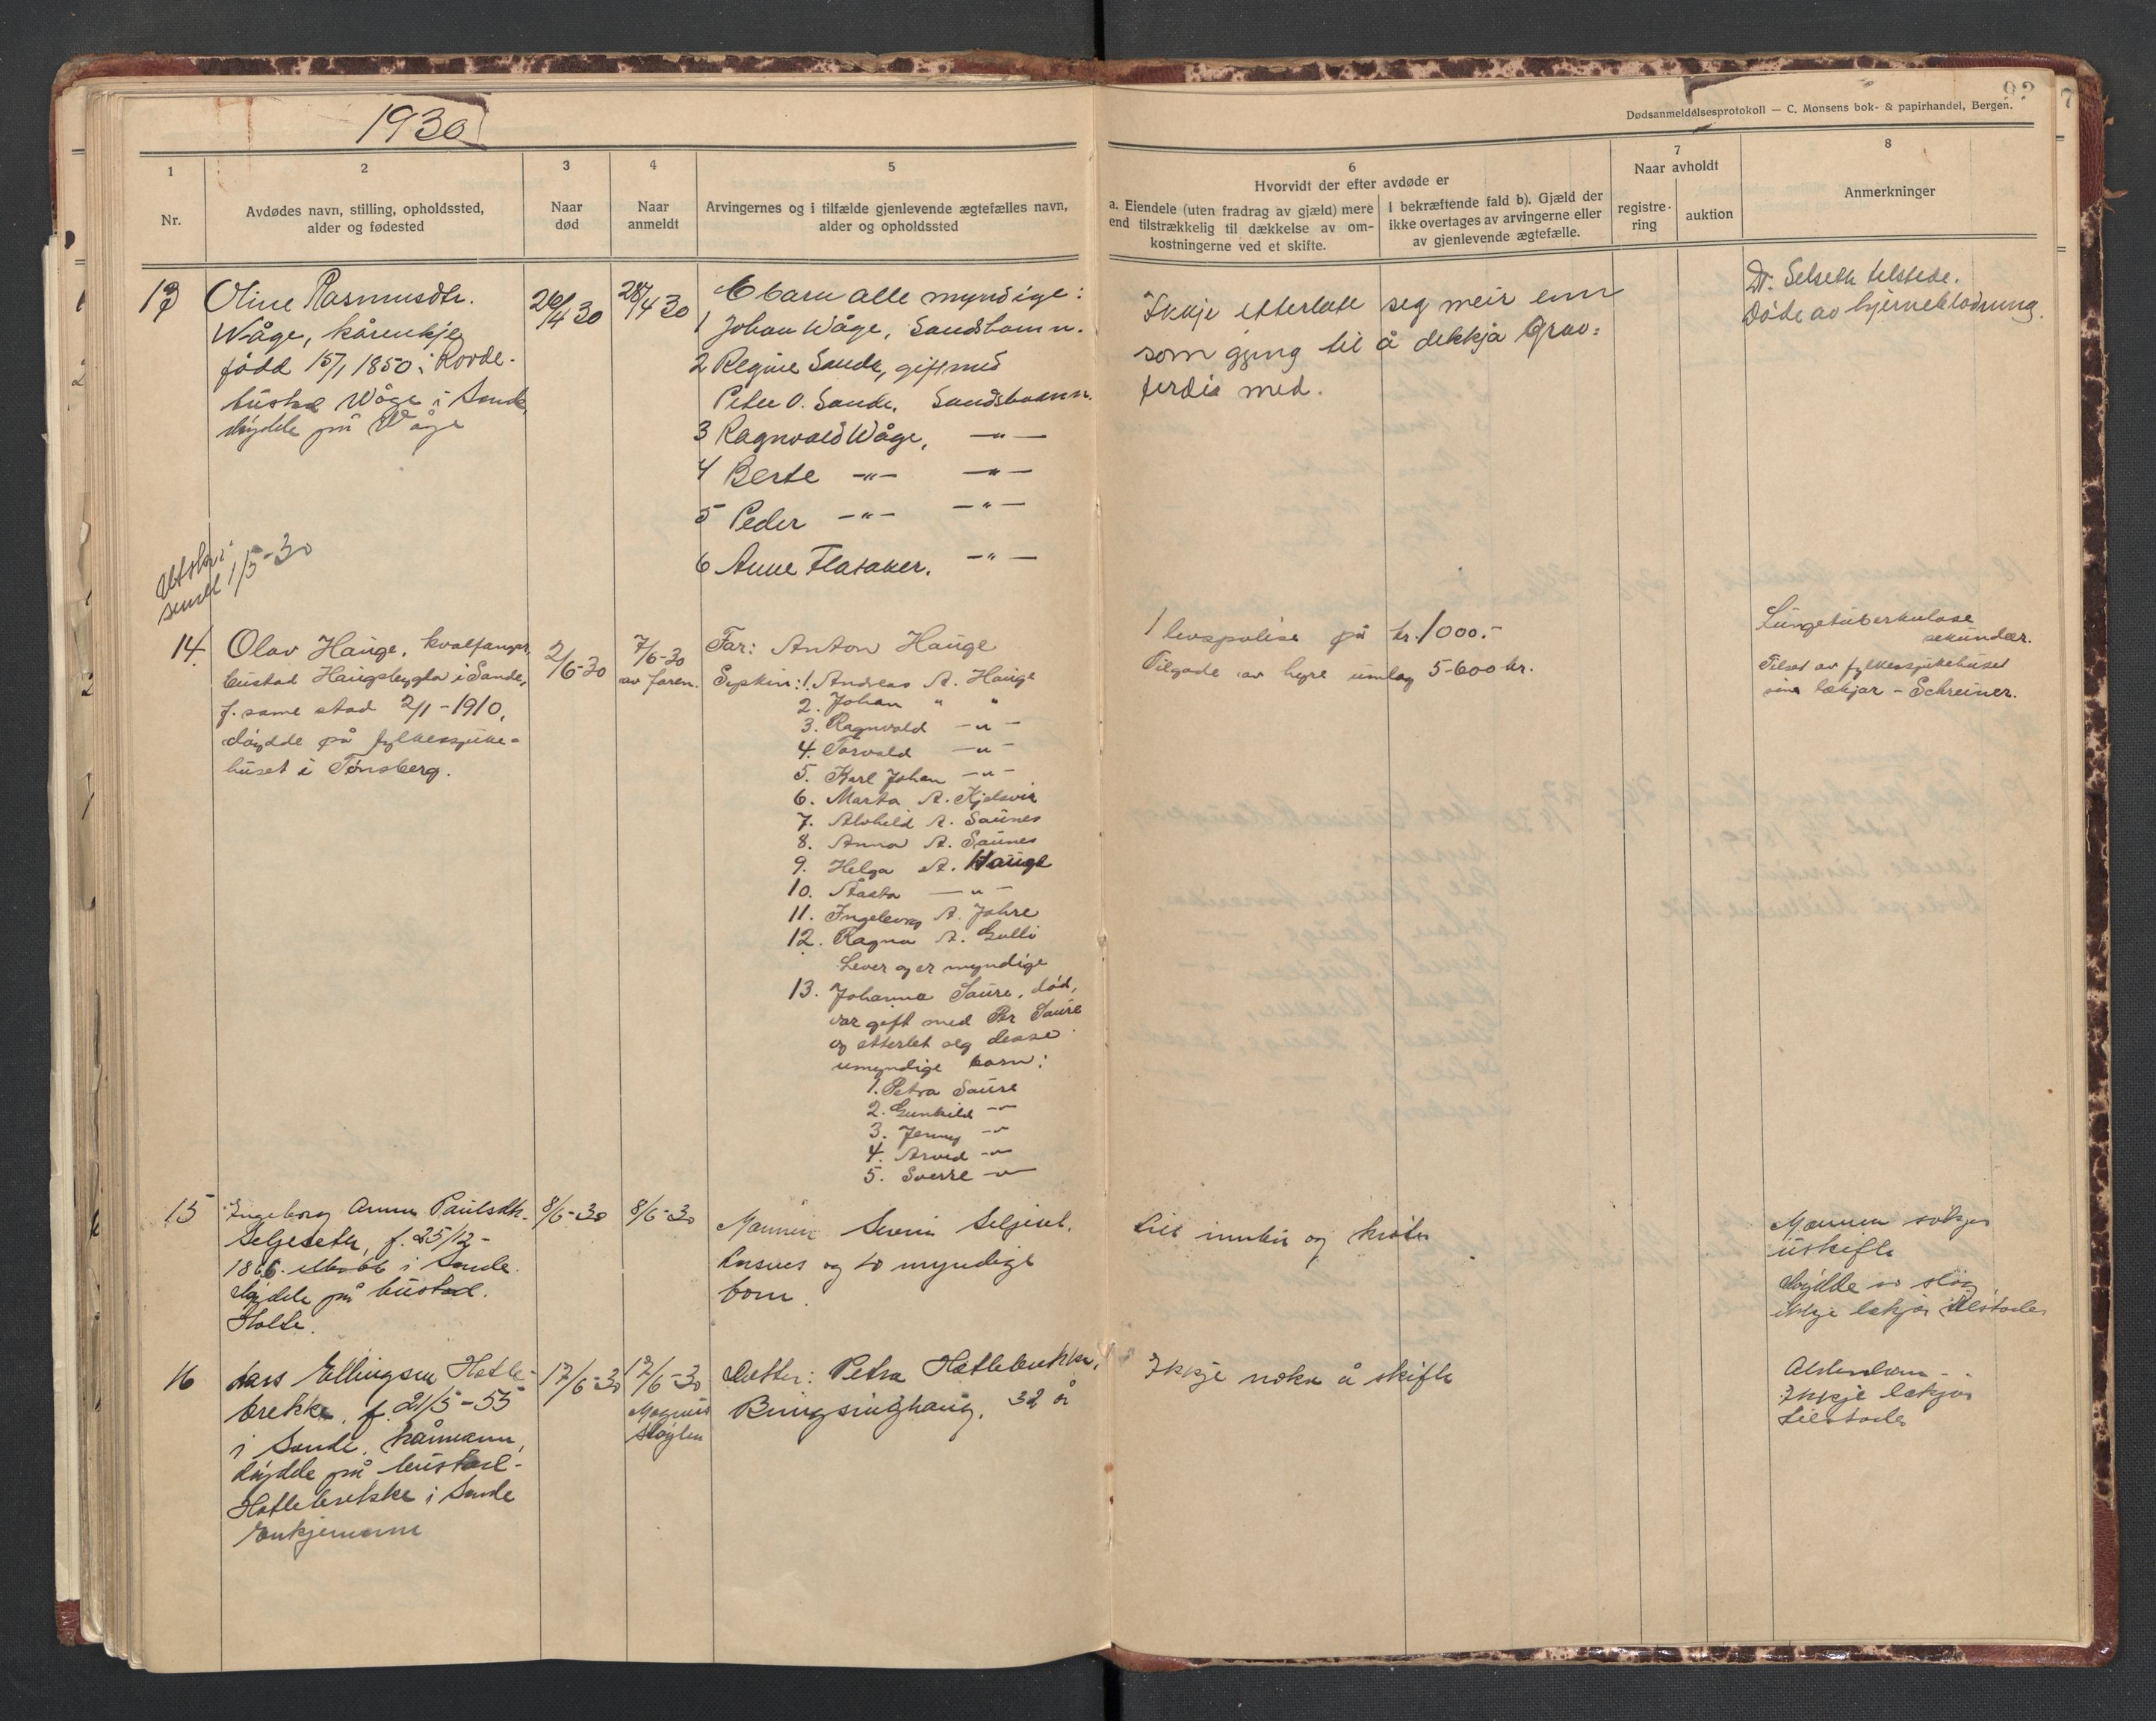 1930
92
Dødsanmeldelsesprotokoll — C. Monsens bok- & papirhandel, Bergen.
1
Nr.
2
Avdødes navn, stilling, opholdssted,
alder og fødested
3
Naar
død
4
Naar
anmeldt
5
Arvingernes og i tilfælde gjenlevende ægtefælles navn,
alder og opholdssted
6
Hvorvidt der efter avdøde er
a. Eiendele (uten fradrag av gjæld) mere
end tilstrækkelig til dækkelse av om-
kostningerne ved et skifte.
I bekræftende fald b). Gjæld der
ikke overtages av arvingerne eller
av gjenlevende ægtefælle.
7
Naar avholdt
registre-
ring
auktion
8
Anmerkninger
13
Oline Rasmusdtr.
Wåge, kårenkje
född 15/1 1850 i Rovde.
bustad Wåge i Sande,
döydde på Wåge
26/4 30
28/4 30
6 barn alle myndige:
1 Johan Wåge, Sandshamn.
2 Regine Sande, gift med
Peter O. Sande, Sandshamn.
3 Ragnvald Wåge, —"—
4 Berte —"— —"—
5 Peder —"— —"—
6 Anne Flatåker. —"—
Ikkje etterlate seg meir enn
som gjeng til å dekkja Grav-
ferdia med.
Dr. Selseth tilstede.
Döde av hjerneblödning.
Utskr.
sendt 1/5-30
14.
Olav Hauge, kvalfanger,
bustad Haugsbygda i Sande,
f. same stad 2/1-1910,
döydde på fylkessjuke-
huset i Tönsberg.
2/6-30
7/6-30
av faren.
Far: Anton Hauge
Syskin: 1. Andreas A. Hauge
2. Johan " "
3. Ragnvald —"—
4. Torvald —"—
5. Karl Johan —"—
6. Marta A. Kjelsvik
7. Alvhild A. Saunes
8. Anna A. Saunes
9. Helga A. Hauge
10. Aasta —"—
11. Ingeborg A. Jahre
12. Ragna A. Gulli
Lever og er myndige
13. Johanna Saure, död,
var gift med Per Saure
og etterlet seg desse
umyndige born:
1. Petra Saure
2. Gunhild —"—
3. Jenny —"—
4. Arvid —"—
5. Sverre —"—
1 livspolise på kr. 1000.-
Tilgode av hyre umlag 5-600 kr.
Lungetuberkulose
sekundær.
Tilset av fylkessjukehuset
sine lækjar - Schreiner.
15
Ingeborg Anna Paulsdtr.
Seljeseth, f. 25/12-
1866. i Sande.
döydde på bustad.
Holte.
8/6-30
8/6-30
Mannen Svein Seljeset.
og 10 myndige
born.
Litt innbu og
Mannen sökjer
uskifte
Döydde av slag
ikkje lækjar tilstades
16
Lars Ellingsen Hatle-
brekke, f. 21/5-55
i Sande, kårmann,
döydde på bustad-
Hatlebrekke i Sande
Enkjemann
17/6-30
17/6-30
Magnus
Döylen
Dotter: Petra Hatlebrekke,
32 år
Ikkje noko å skifte
Alderdom -
Ikkje lækjar
tilstades